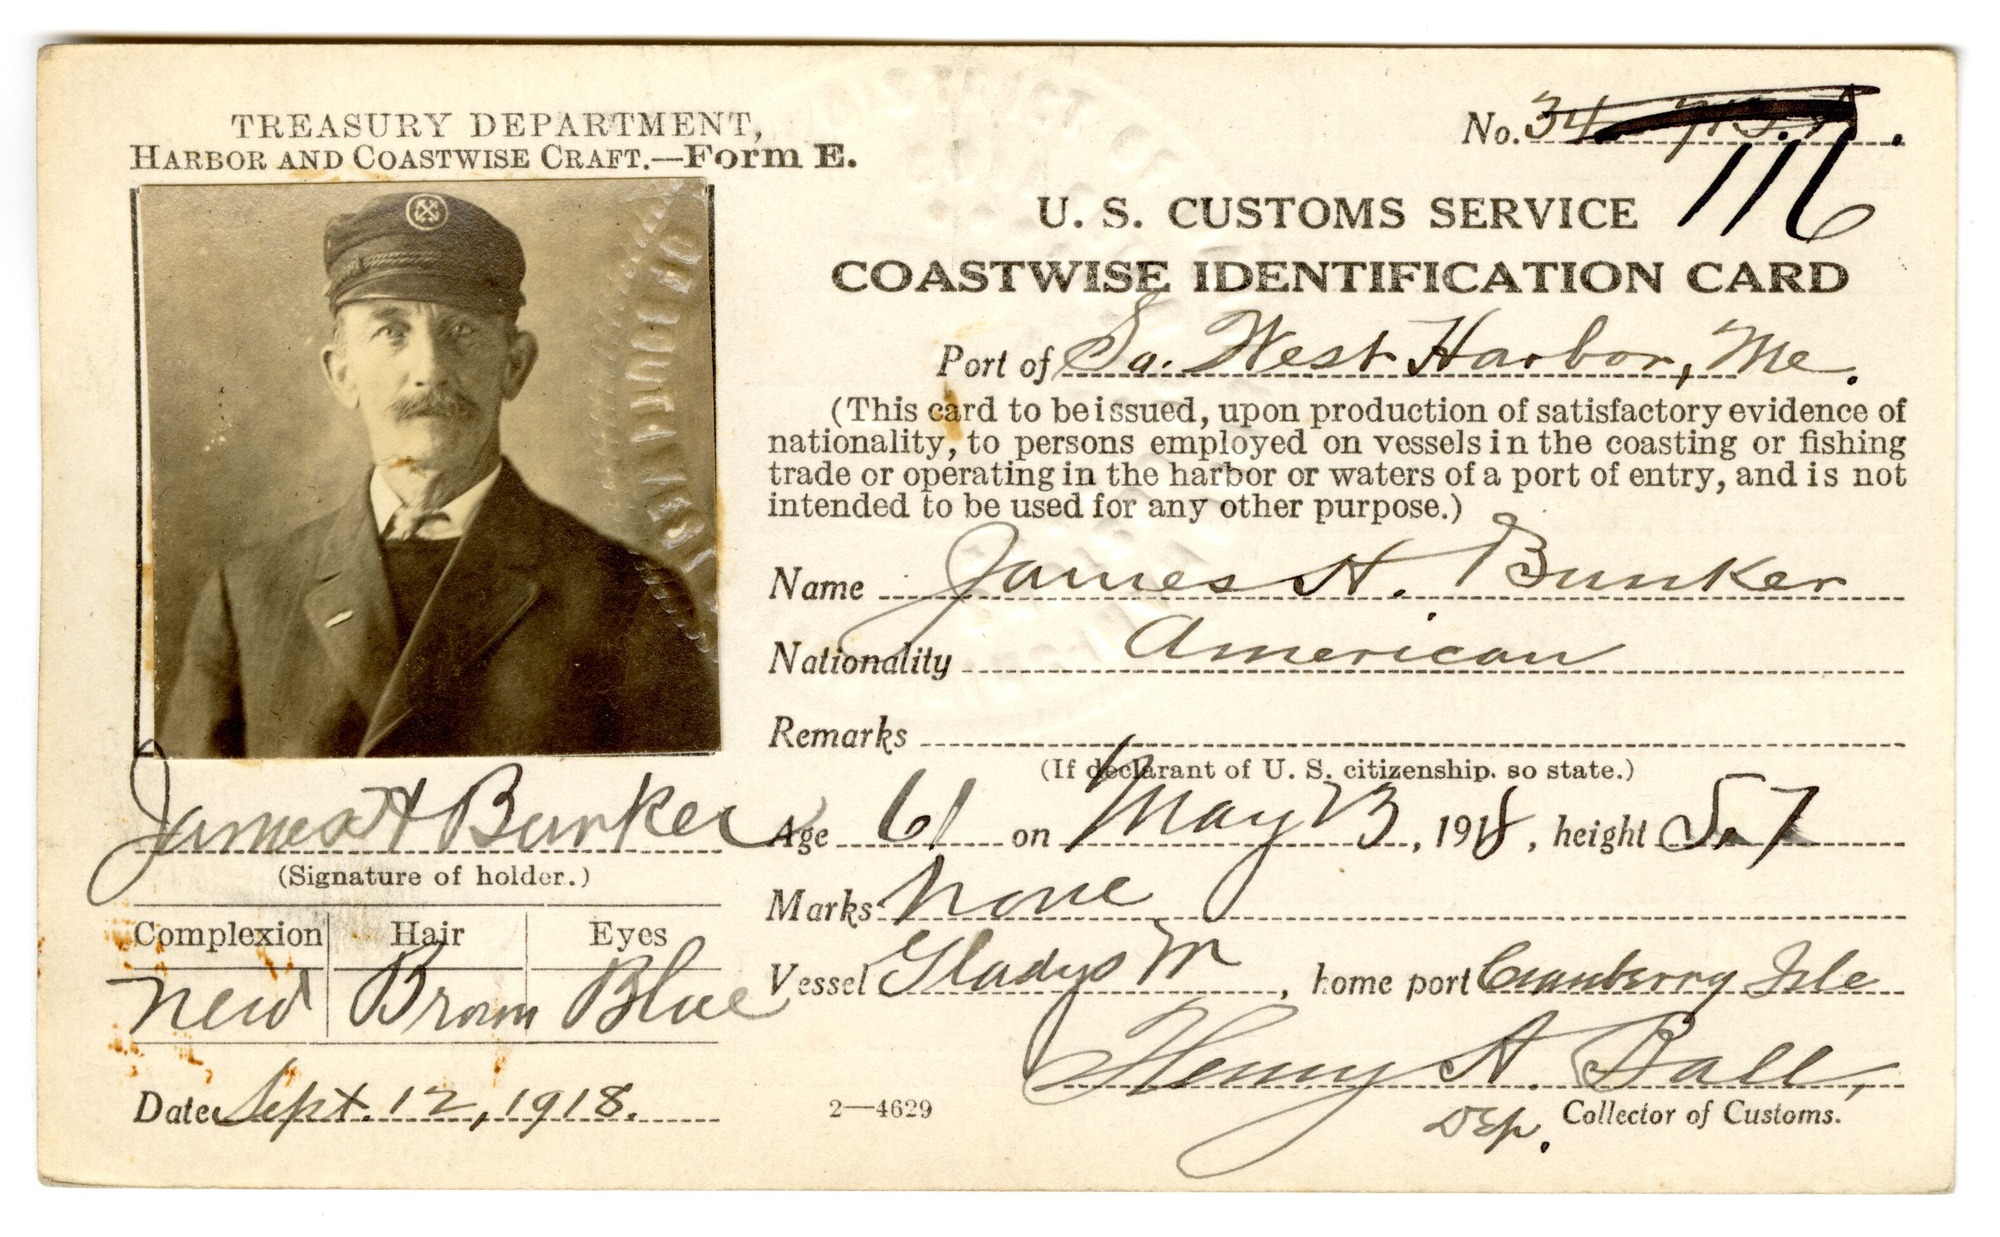 TREASURY DEPARTMENT,
HARBOR AND COASTWISE CRAFT.—Form E.
No. 34
116
U. S. CUSTOMS SERVICE
COASTWISE IDENTIFICATION CARD
Port of So. West Harbor, Me.
(This card to be issued, upon production of satisfactory evidence of
nationality, to persons employed on vessels in the coasting or fishing
trade or operating in the harbor or waters of a port of entry, and is not
intended to be used for any other purpose.)
Name James H. Bunker
Nationality American
Remarks
(If declarant of U. S. citizenship, so state.)
Age 61 on May 23, 1918, height 5.7
Marks none
Vessel Gladys M, home port Cranberry Isle
Henry A. Ball,
Dep. Collector of Customs.
James H Bunker
(Signature of holder.)
Complexion Hair Eyes
Med Brown Blue
Date Sept. 12, 1918.
2—4629